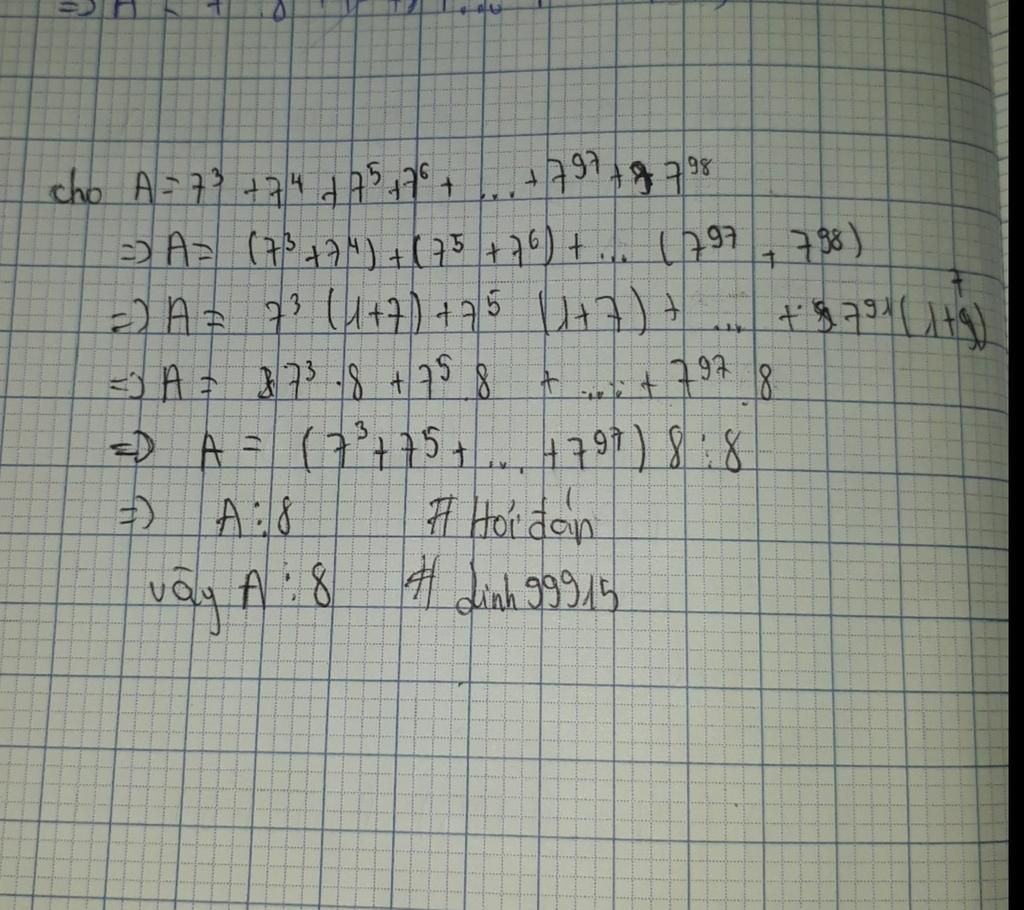 cho A = 7³ + 7⁴ + 7⁵ + 7⁶ + ... + 7⁹⁷ + 7⁹⁸
=> A = (7³ + 7⁴) + (7⁵ + 7⁶) + ... (7⁹⁷ + 7⁹⁸)
=> A = 7³ (1+7) + 7⁵ (1+7) + ... + 7⁹⁷ (1+7)
=> A = 7³ . 8 + 7⁵ 8 + ... + 7⁹⁷ . 8
=> A = (7³ + 7⁵ + ... + 7⁹⁷) 8 ⋮ 8
=> A ⋮ 8 # Hỏi đáp
vậy A ⋮ 8 # dinh99915